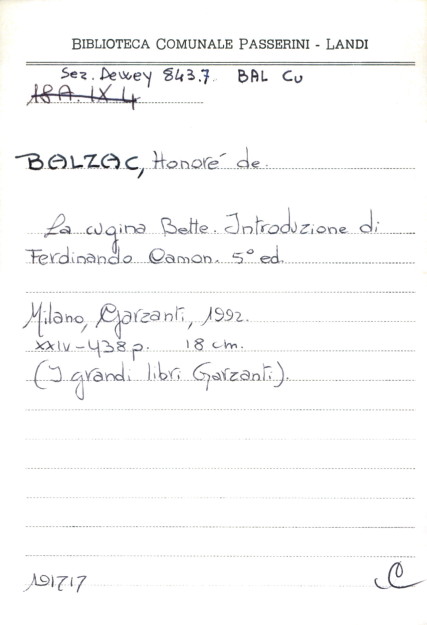 BIBLIOTECA COMUNALE PASSERINI - LANDI
Sez. Dewey 843.7 BAL Cu
18A. IX 4
BALZAC, Honoré de.
La cugina Bette. Introduzione di
Ferdinando Camon. 5° ed.
Milano, Garzanti, 1992.
XXIV-438 p. 18 cm.
(I grandi libri Garzanti).
191717
C